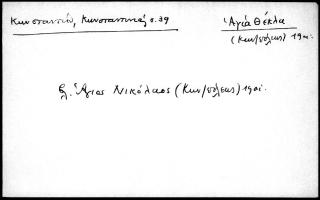 Κωνσταντίου, Κωνσταντινιάς σ. 39
Ἁγία Θέκλα
(Κων/πόλεως) 19αι.
βλ. Ἅγιος Νικόλαος (Κων/πόλεως) 19αι.